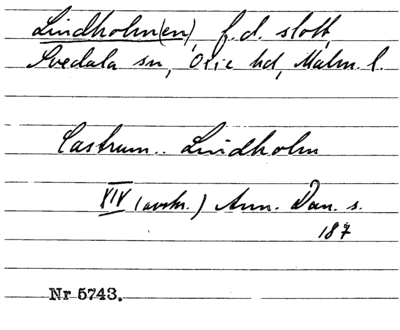 Lindholm(en), f.d. slott,
Svedala sn, Oxie hd, Malm. l.
Castrum.. Lindholm
XIV (avskr.) Ann. Dan. s.
187
Nr 5743.